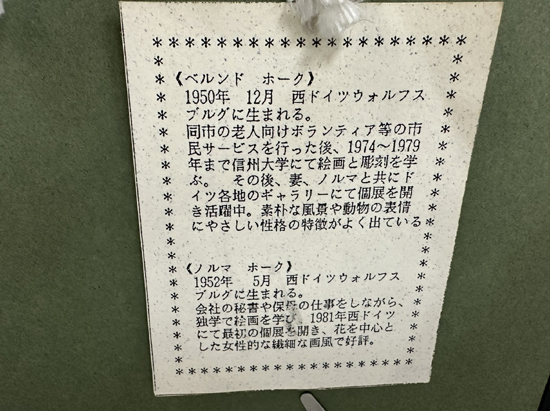 * * * * * * * * * * * * * * * * * * * * * *
《ベルンド　ホーク》
1950年　12月　西ドイツウォルフス
ブルグに生まれる。
同市の老人向けボランティア等の市
民サービスを行った後、1974～1979
年まで信州大学にて絵画と彫刻を学
ぶ。　その後、妻、ノルマと共にド
イツ各地のギャラリーにて個展を開
き活躍中。素朴な風景や動物の表情
にやさしい性格の特徴がよく出ている
《ノルマ　ホーク》
1952年　5月　西ドイツウォルフス
ブルグに生まれる。
会社の秘書や保母の仕事をしながら、
独学で絵画を学び、1981年西ドイツ
にて最初の個展を開き、花を中心と
した女性的な繊細な画風で好評。
* * * * * * * * * * * * * * * * * * * *